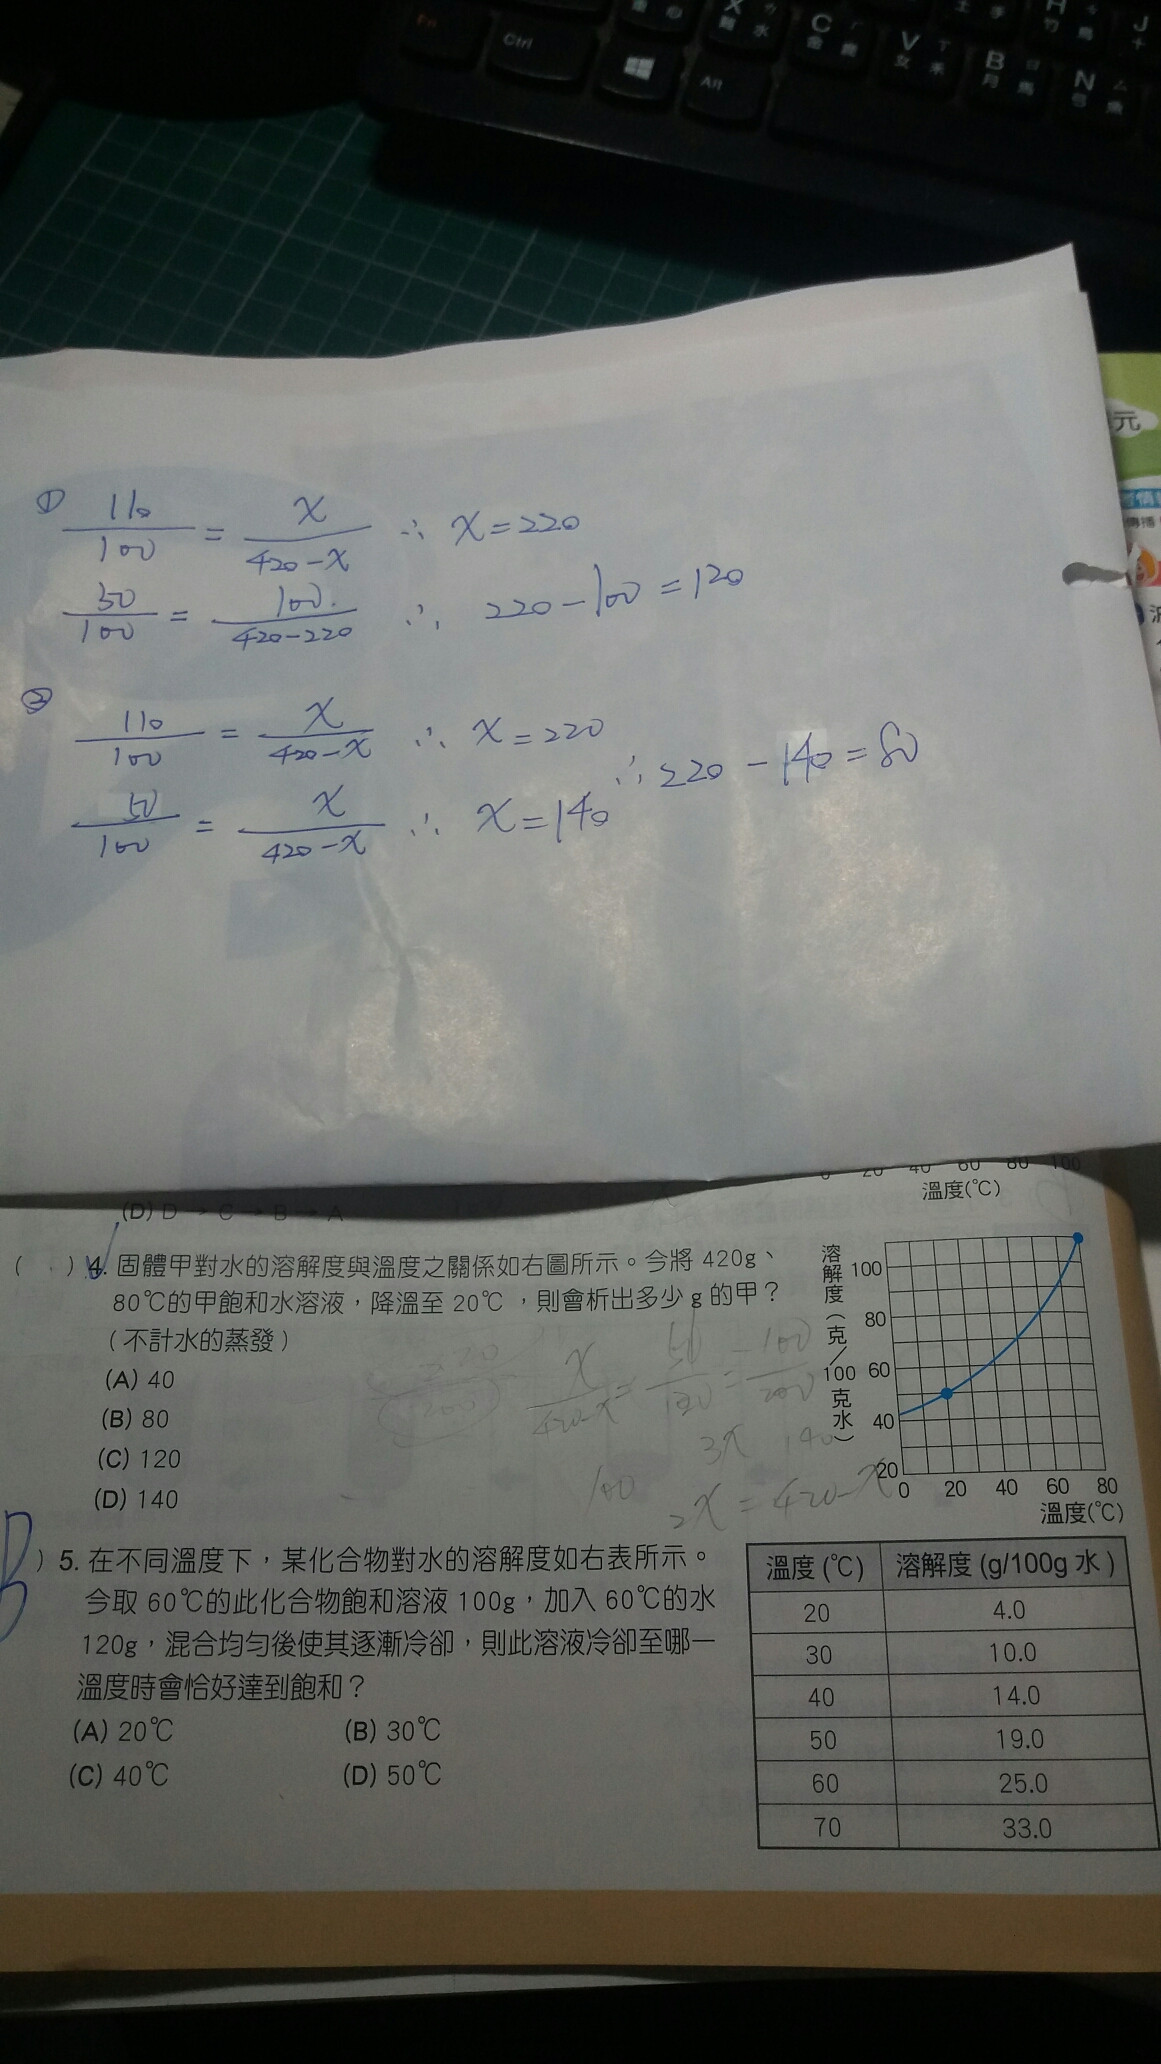 Fn
Ctrl
Alt
X
C
V
B
N
H
J
① 110/100 = x/(420-x) ∴ x=220
50/100 = 100/(420-220) ∴ 220-100=120
② 110/100 = x/(420-x) ∴ x=220
50/100 = x/(420-x) ∴ x=140 ∴ 220-140=80
元
0 20 40 60 80 100
溫度(℃)
(D) D → C → B → A
( ) 4. 固體甲對水的溶解度與溫度之關係如右圖所示。今將 420g、
80℃的甲飽和水溶液，降溫至 20℃，則會析出多少 g 的甲？
(不計水的蒸發)
(A) 40
(B) 80
(C) 120
(D) 140
x/(420-x) = 50/100 = 100/200
3x 140
100
2x = 420-x
溶解度(克/100克水)
100
80
60
40
20
0 20 40 60 80
溫度(℃)
B ) 5. 在不同溫度下，某化合物對水的溶解度如右表所示。
今取 60℃的此化合物飽和溶液 100g，加入 60℃的水
120g，混合均勻後使其逐漸冷卻，則此溶液冷卻至哪一
溫度時會恰好達到飽和？
(A) 20℃ (B) 30℃
(C) 40℃ (D) 50℃
溫度 (℃) 溶解度 (g/100g 水)
20 4.0
30 10.0
40 14.0
50 19.0
60 25.0
70 33.0